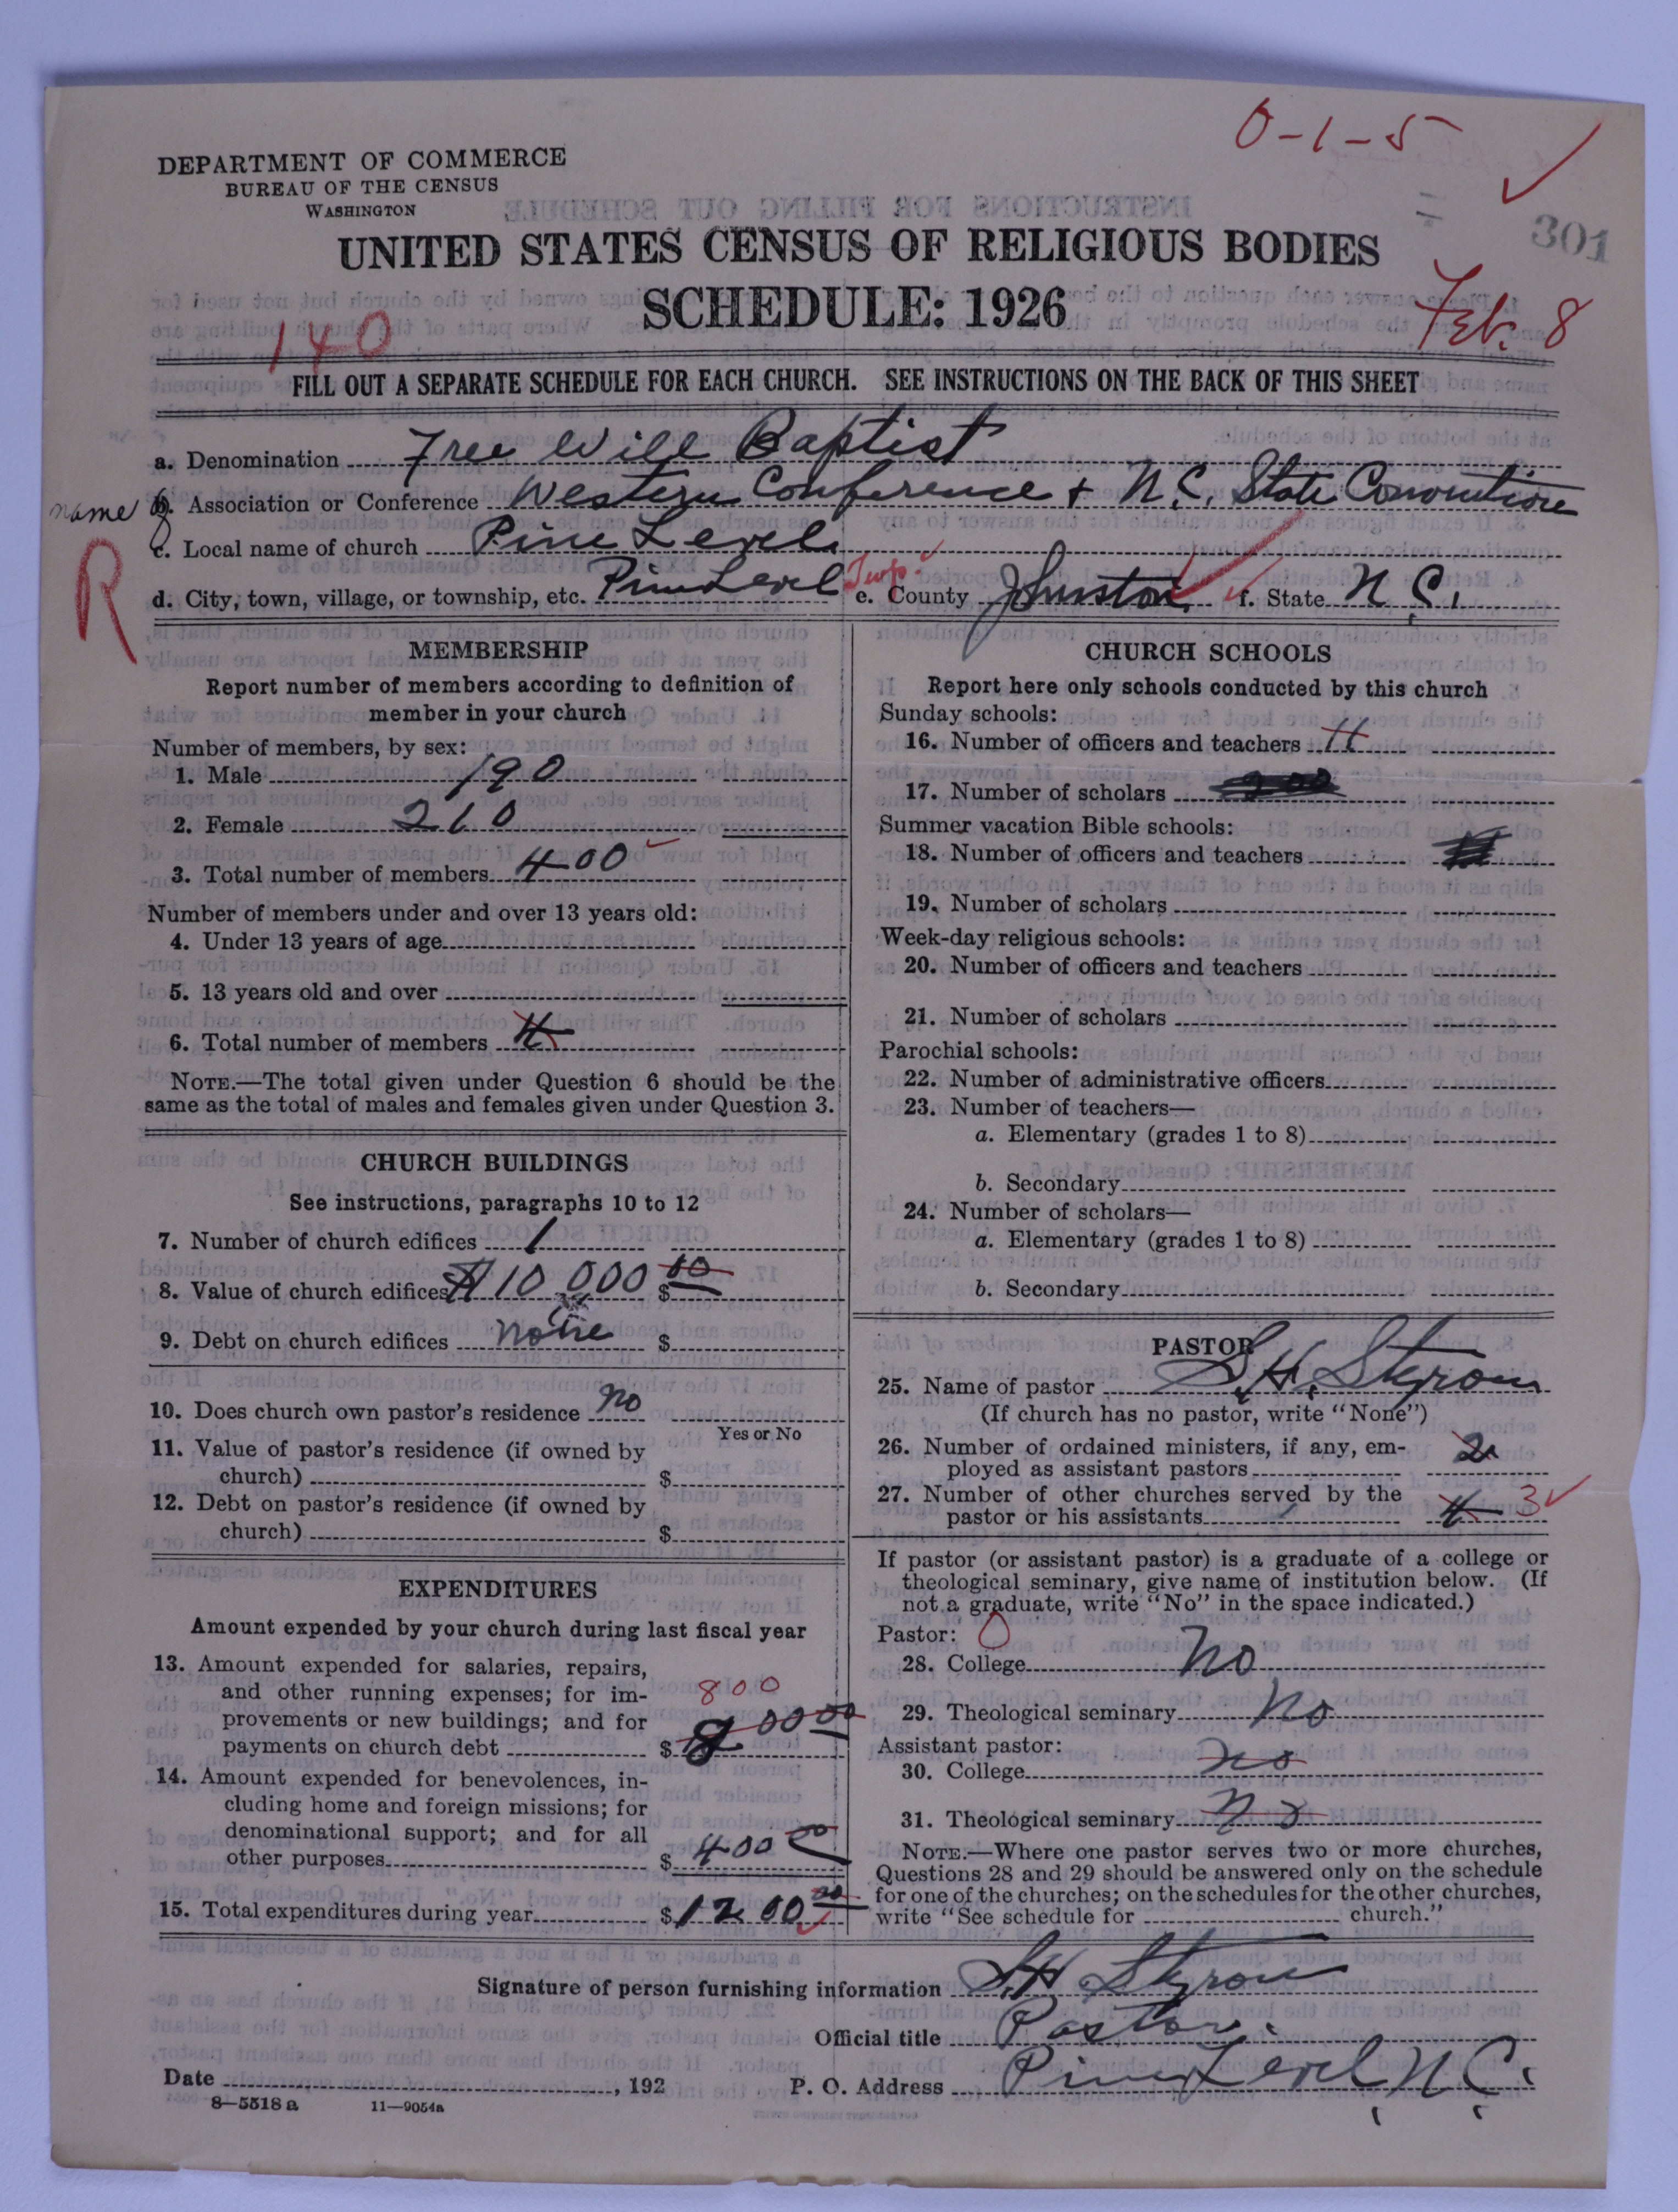 0-1-5
DEPARTMENT OF COMMERCE
BUREAU OF THE CENSUS
WASHINGTON
301
UNITED STATES CENSUS OF RELIGIOUS BODIES
SCHEDULE: 1926
Feb. 8
140
FILL OUT A SEPARATE SCHEDULE FOR EACH CHURCH. SEE INSTRUCTIONS ON THE BACK OF THIS SHEET
a. Denomination Free Will Baptist
name b. Association or Conference Western Conference + N.C. State Convention
R c. Local name of church Pine Level
d. City, town, village, or township, etc. Pine Level Twp. e. County Johnston f. State N C.
MEMBERSHIP
Report number of members according to definition of
member in your church
Number of members, by sex:
1. Male 190
2. Female 210
3. Total number of members 400
Number of members under and over 13 years old:
4. Under 13 years of age
5. 13 years old and over
6. Total number of members
NOTE.—The total given under Question 6 should be the
same as the total of males and females given under Question 3.
CHURCH BUILDINGS
See instructions, paragraphs 10 to 12
7. Number of church edifices 1
8. Value of church edifices $10,000 $ 00
9. Debt on church edifices none $
10. Does church own pastor's residence no
Yes or No
11. Value of pastor's residence (if owned by
church) $
12. Debt on pastor's residence (if owned by
church) $
EXPENDITURES
Amount expended by your church during last fiscal year
13. Amount expended for salaries, repairs,
and other running expenses; for im-
provements or new buildings; and for
payments on church debt $ 800 00
800
14. Amount expended for benevolences, in-
cluding home and foreign missions; for
denominational support; and for all
other purposes $ 400 00
15. Total expenditures during year $ 1200 00
CHURCH SCHOOLS
Report here only schools conducted by this church
Sunday schools:
16. Number of officers and teachers 11
17. Number of scholars
Summer vacation Bible schools:
18. Number of officers and teachers
19. Number of scholars
Week-day religious schools:
20. Number of officers and teachers
21. Number of scholars
Parochial schools:
22. Number of administrative officers
23. Number of teachers—
a. Elementary (grades 1 to 8)
b. Secondary
24. Number of scholars—
a. Elementary (grades 1 to 8)
b. Secondary
PASTOR
25. Name of pastor S.H. Styron
(If church has no pastor, write "None")
26. Number of ordained ministers, if any, em-
ployed as assistant pastors 2
27. Number of other churches served by the
pastor or his assistants 4 3
If pastor (or assistant pastor) is a graduate of a college or
theological seminary, give name of institution below. (If
not a graduate, write "No" in the space indicated.)
Pastor: 0
28. College No
29. Theological seminary No
Assistant pastor:
30. College no
31. Theological seminary No
NOTE.—Where one pastor serves two or more churches,
Questions 28 and 29 should be answered only on the schedule
for one of the churches; on the schedules for the other churches,
write "See schedule for church."
Signature of person furnishing information S.H. Styron
Official title Pastor.
Date , 192 P. O. Address Pine Level, N.C.
8—5518a 11—9054a